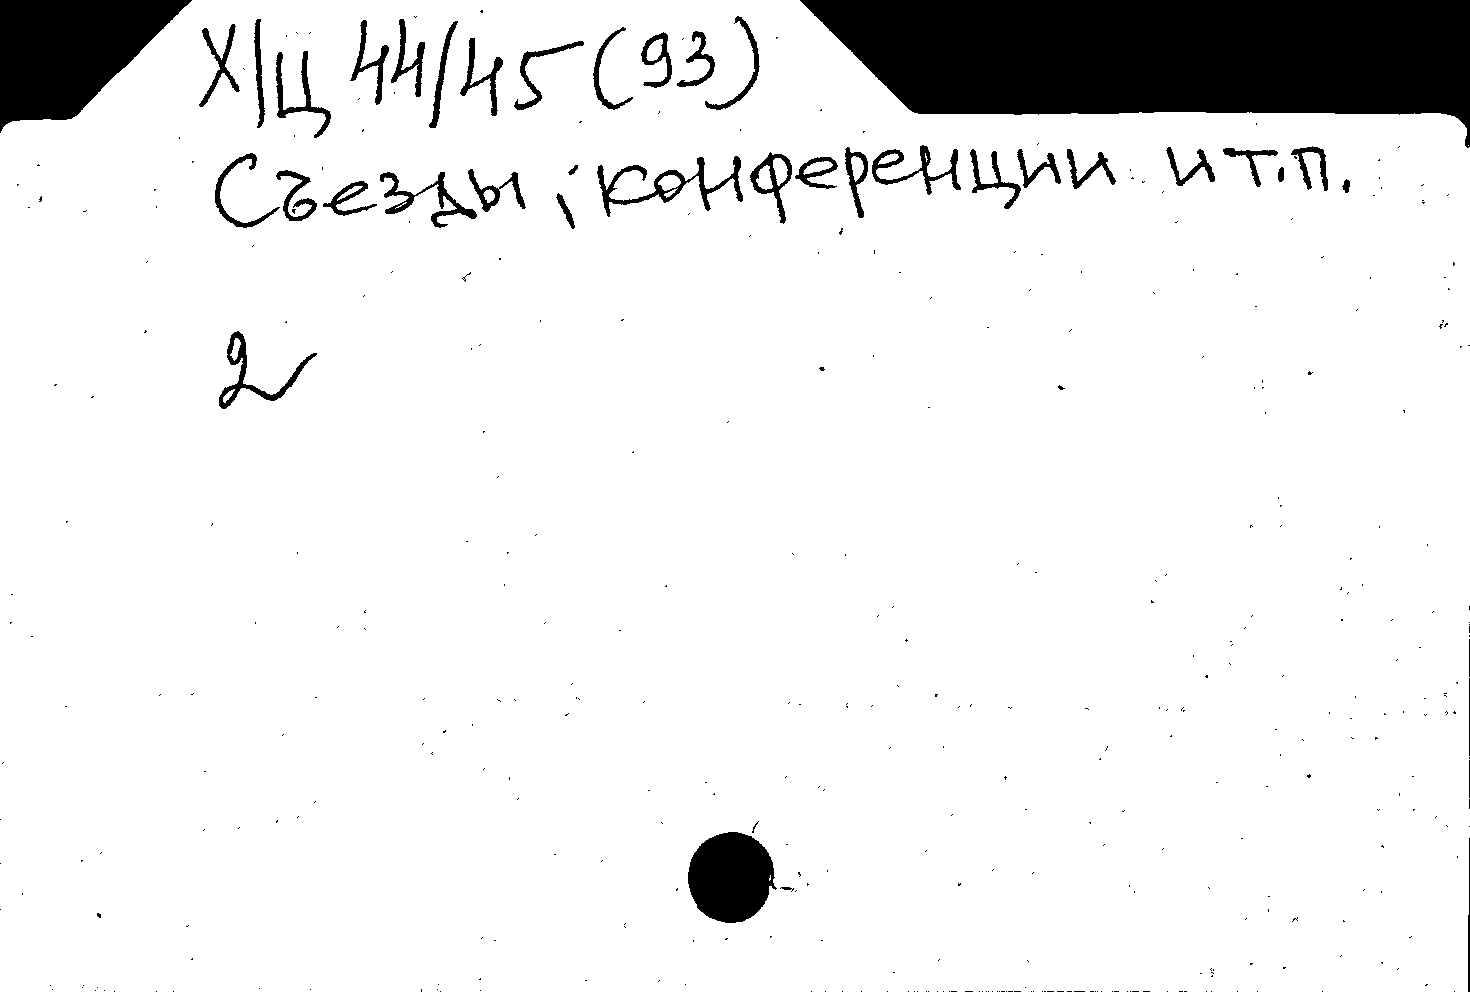 Х/Ц 44/45 (93)
Съезды, конференции и т.п.
2